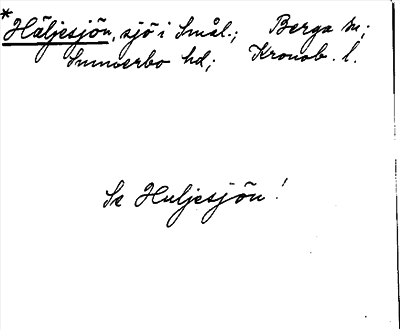 * Häljesjön, sjö i Smål.; Berga sn;
Sunnerbo hd; Kronob. l.
Se Huljesjön!